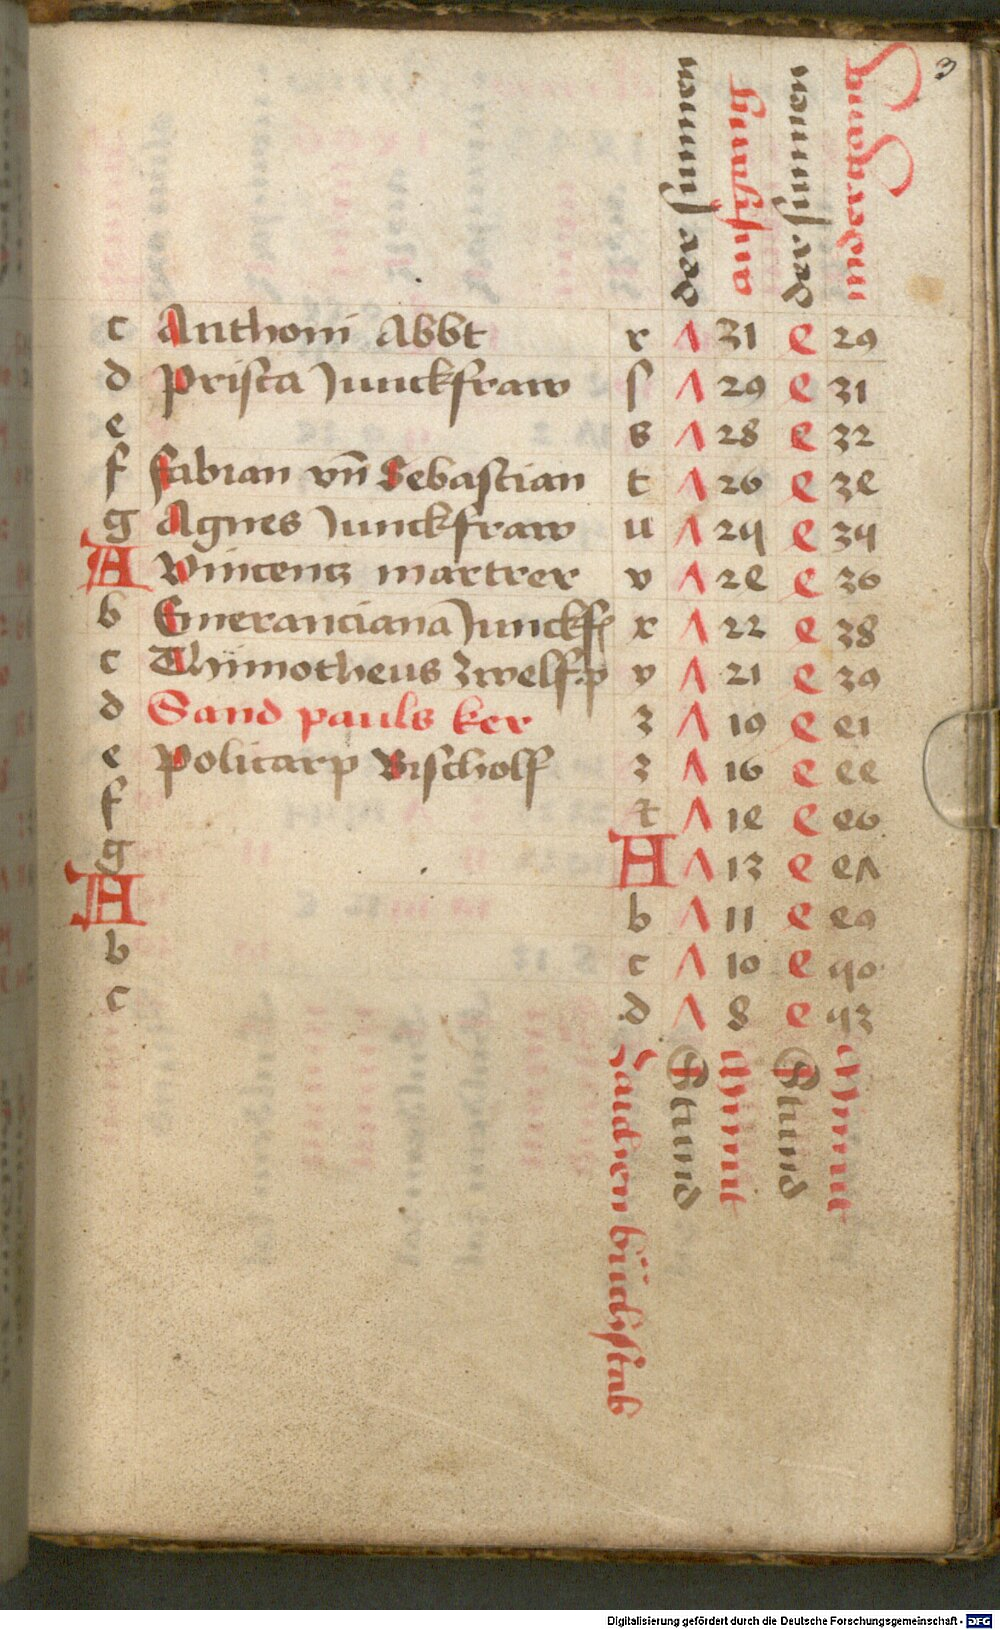 3
der sunnen
auffgang
der sunnen
nidergang
c Anthoni Abbt r 7 31 4 29
d Prisca Junckfraw ſ 7 29 4 31
e s 7 28 4 32
f Fabian vn̄ Sebastian t 7 26 4 34
g Agnes Junckfraw u 7 25 4 35
A Vincencz martrer v 7 24 4 36
b Emeranciana Junckf x 7 22 4 38
c Thimotheus zwelfp y 7 21 4 39
d Sand pauls ker z 7 19 4 41
e Policarp Bischolf z 7 16 4 44
f t 7 14 4 46
g A 7 13 4 47
A b 7 11 4 49
b c 7 10 4 50
c d 7 8 4 53
Zaichen büchstab
Stund
Minut
Stund
Minut
Digitalisierung gefördert durch die Deutsche Forschungsgemeinschaft - DFG